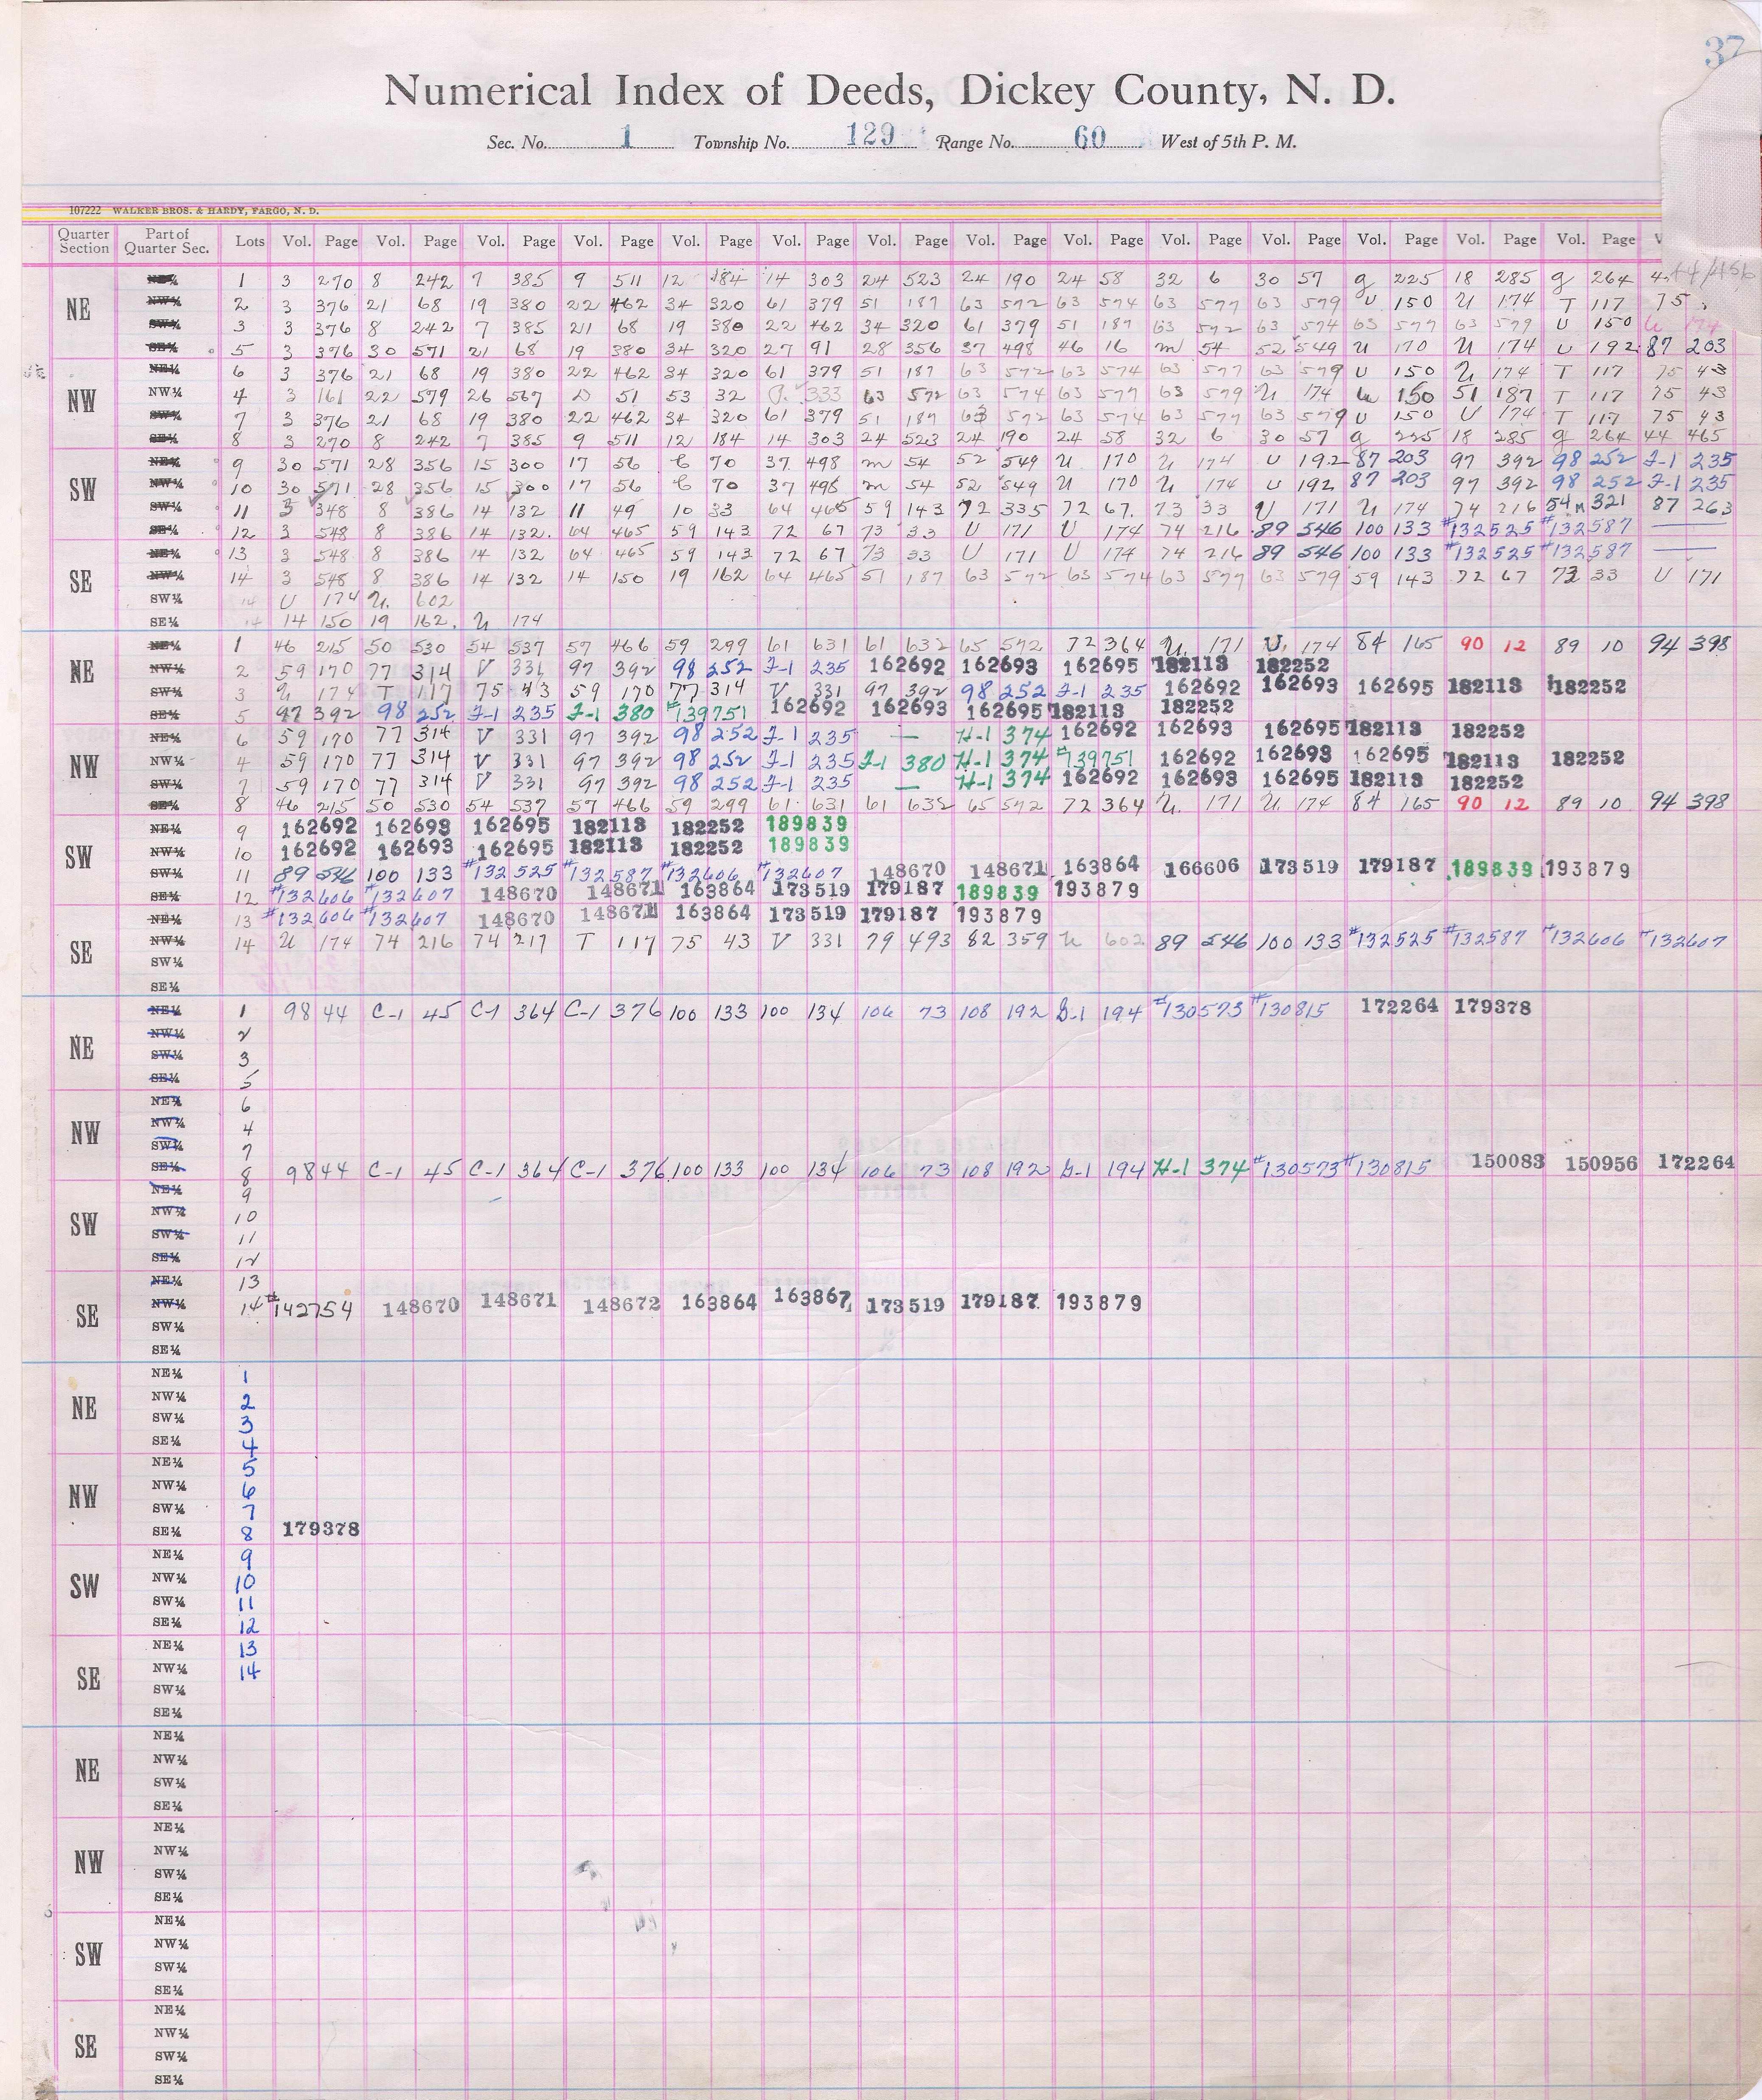 37
Numerical Index of Deeds, Dickey County, N. D.
Sec. No. 1 Township No. 129 Range No. 60 West of 5th P. M.
107222 WALKER BROS. & HARDY, FARGO, N. D.
Quarter Section Part of Quarter Sec. Lots Vol. Page Vol. Page Vol. Page Vol. Page Vol. Page Vol. Page Vol. Page Vol. Page Vol. Page Vol. Page Vol. Page Vol. Page Vol. Page Vol. Page
NE
NE¼ 1 3 270 8 242 7 385 9 511 12 184 14 303 24 523 24 190 24 58 32 6 30 57 g 225 18 285 g 264 44/456
NW¼ 2 3 376 21 68 19 380 22 462 34 320 61 379 51 187 63 572 63 574 63 577 63 579 U 150 U 174 T 117 75
SW¼ 3 3 376 8 242 7 385 21 68 19 380 22 462 34 320 61 379 51 187 63 572 63 574 63 577 63 579 U 150 U 174
SE¼ 5 3 376 30 571 21 68 19 380 34 320 27 91 28 356 37 498 46 16 m 54 52 549 U 170 U 174 U 192 87 203
NW
NE¼ 6 3 376 21 68 19 380 22 462 34 320 61 379 51 187 63 572 63 574 63 577 63 579 U 150 U 174 T 117 75 43
NW¼ 4 3 161 22 579 26 567 D 51 53 32 333 63 572 63 574 63 577 63 579 U 174 U 150 51 187 T 117 75 43
SW¼ 7 3 376 21 68 19 380 22 462 34 320 61 379 51 187 63 572 63 574 63 577 63 579 U 150 U 174 T 117 75 43
SE¼ 8 3 270 8 242 7 385 9 511 12 184 14 303 24 523 24 190 24 58 32 6 30 57 g 225 18 285 g 264 44 465
SW
NE¼ 9 30 571 28 356 15 300 17 56 70 37 498 m 54 52 549 U 170 U 174 U 192 87 203 97 392 98 252 J-1 235
NW¼ 10 30 571 28 356 15 300 17 56 70 37 498 m 54 52 549 U 170 U 174 U 192 87 203 97 392 98 252 J-1 235
SW¼ 11 3 348 8 386 14 132 11 49 10 33 64 465 59 143 72 335 72 67 73 33 U 171 U 174 74 216 54M 321 87 263
SE¼ 12 3 548 8 386 14 132 64 465 59 143 72 67 73 33 U 171 U 174 74 216 89 546 100 133 #132525 #132587
SE
NE¼ 13 3 548 8 386 14 132 64 465 59 143 72 67 73 33 U 171 U 174 74 216 89 546 100 133 #132525 #132587
NW¼ 14 3 548 8 386 14 132 14 150 19 162 64 465 51 187 63 572 63 574 63 577 63 579 59 143 72 67 73 33 U 171
SW¼ 14 U 174 U 602
SE¼ 14 14 150 19 162 U 174
NE
NE¼ 1 46 215 50 530 54 537 57 466 59 299 61 631 61 632 65 592 72 364 U 171 U 174 84 165 90 12 89 10 94 398
NW¼ 2 59 170 77 314 V 331 97 392 98 252 J-1 235 162692 162693 162695 182113 182252
SW¼ 3 U 174 T 117 75 43 59 170 77 314 V 331 97 392 98 252 J-1 235 162692 162693 162695 182113 182252
SE¼ 5 97 392 98 252 J-1 235 J-1 380 #139751 162692 162693 162695 182113 182252
NW
NE¼ 6 59 170 77 314 V 331 97 392 98 252 J-1 235 — H-1 374 162692 162693 162695 182113 182252
NW¼ 4 59 170 77 314 V 331 97 392 98 252 J-1 235 J-1 380 H-1 374 #139751 162692 162693 162695 182113 182252
SW¼ 7 59 170 77 314 V 331 97 392 98 252 J-1 235 — H-1 374 162692 162693 162695 182113 182252
SE¼ 8 46 215 50 530 54 537 57 466 59 299 61 631 61 632 65 592 72 364 U 171 U 174 84 165 90 12 89 10 94 398
SW
NE¼ 9 162692 162693 162695 182113 182252 189839
NW¼ 10 162692 162693 162695 182113 182252 189839
SW¼ 11 89 546 100 133 #132525 #132587 #132606 #132607 148670 148671 163864 166606 173519 179187 189839 193879
SE¼ 12 #132606 #132607 148670 148671 163864 173519 179187 189839 193879
SE
NE¼ 13 #132606 #132607 148670 148671 163864 173519 179187 193879
NW¼ 14 U 174 74 216 74 217 T 117 75 43 V 331 79 493 82 359 U 602 89 546 100 133 #132525 #132587 #132606 #132607
SW¼
SE¼
NE
NE¼ 1 98 44 C-1 45 C-1 364 C-1 376 100 133 100 134 106 73 108 192 G-1 194 #130573 #130815 172264 179378
NW¼ 2
SW¼ 3
SE¼ 5
NW
NE¼ 6
NW¼ 4
SW¼ 7
SE¼ 8 98 44 C-1 45 C-1 364 C-1 376 100 133 100 134 106 73 108 192 G-1 194 H-1 374 #130573 #130815 150083 150956 172264
SW
NE¼ 9
NW¼ 10
SW¼ 11
SE¼ 12
SE
NE¼ 13
NW¼ 14 #142754 148670 148671 148672 163864 163867 173519 179187 193879
SW¼
SE¼
NE
NE¼ 1
NW¼ 2
SW¼ 3
SE¼ 4
NW
NE¼ 5
NW¼ 6
SW¼ 7
SE¼ 8 179378
SW
NE¼ 9
NW¼ 10
SW¼ 11
SE¼ 12
SE
NE¼ 13
NW¼ 14
SW¼
SE¼
NE
NE¼
NW¼
SW¼
SE¼
NW
NE¼
NW¼
SW¼
SE¼
SW
NE¼
NW¼
SW¼
SE¼
SE
NE¼
NW¼
SW¼
SE¼